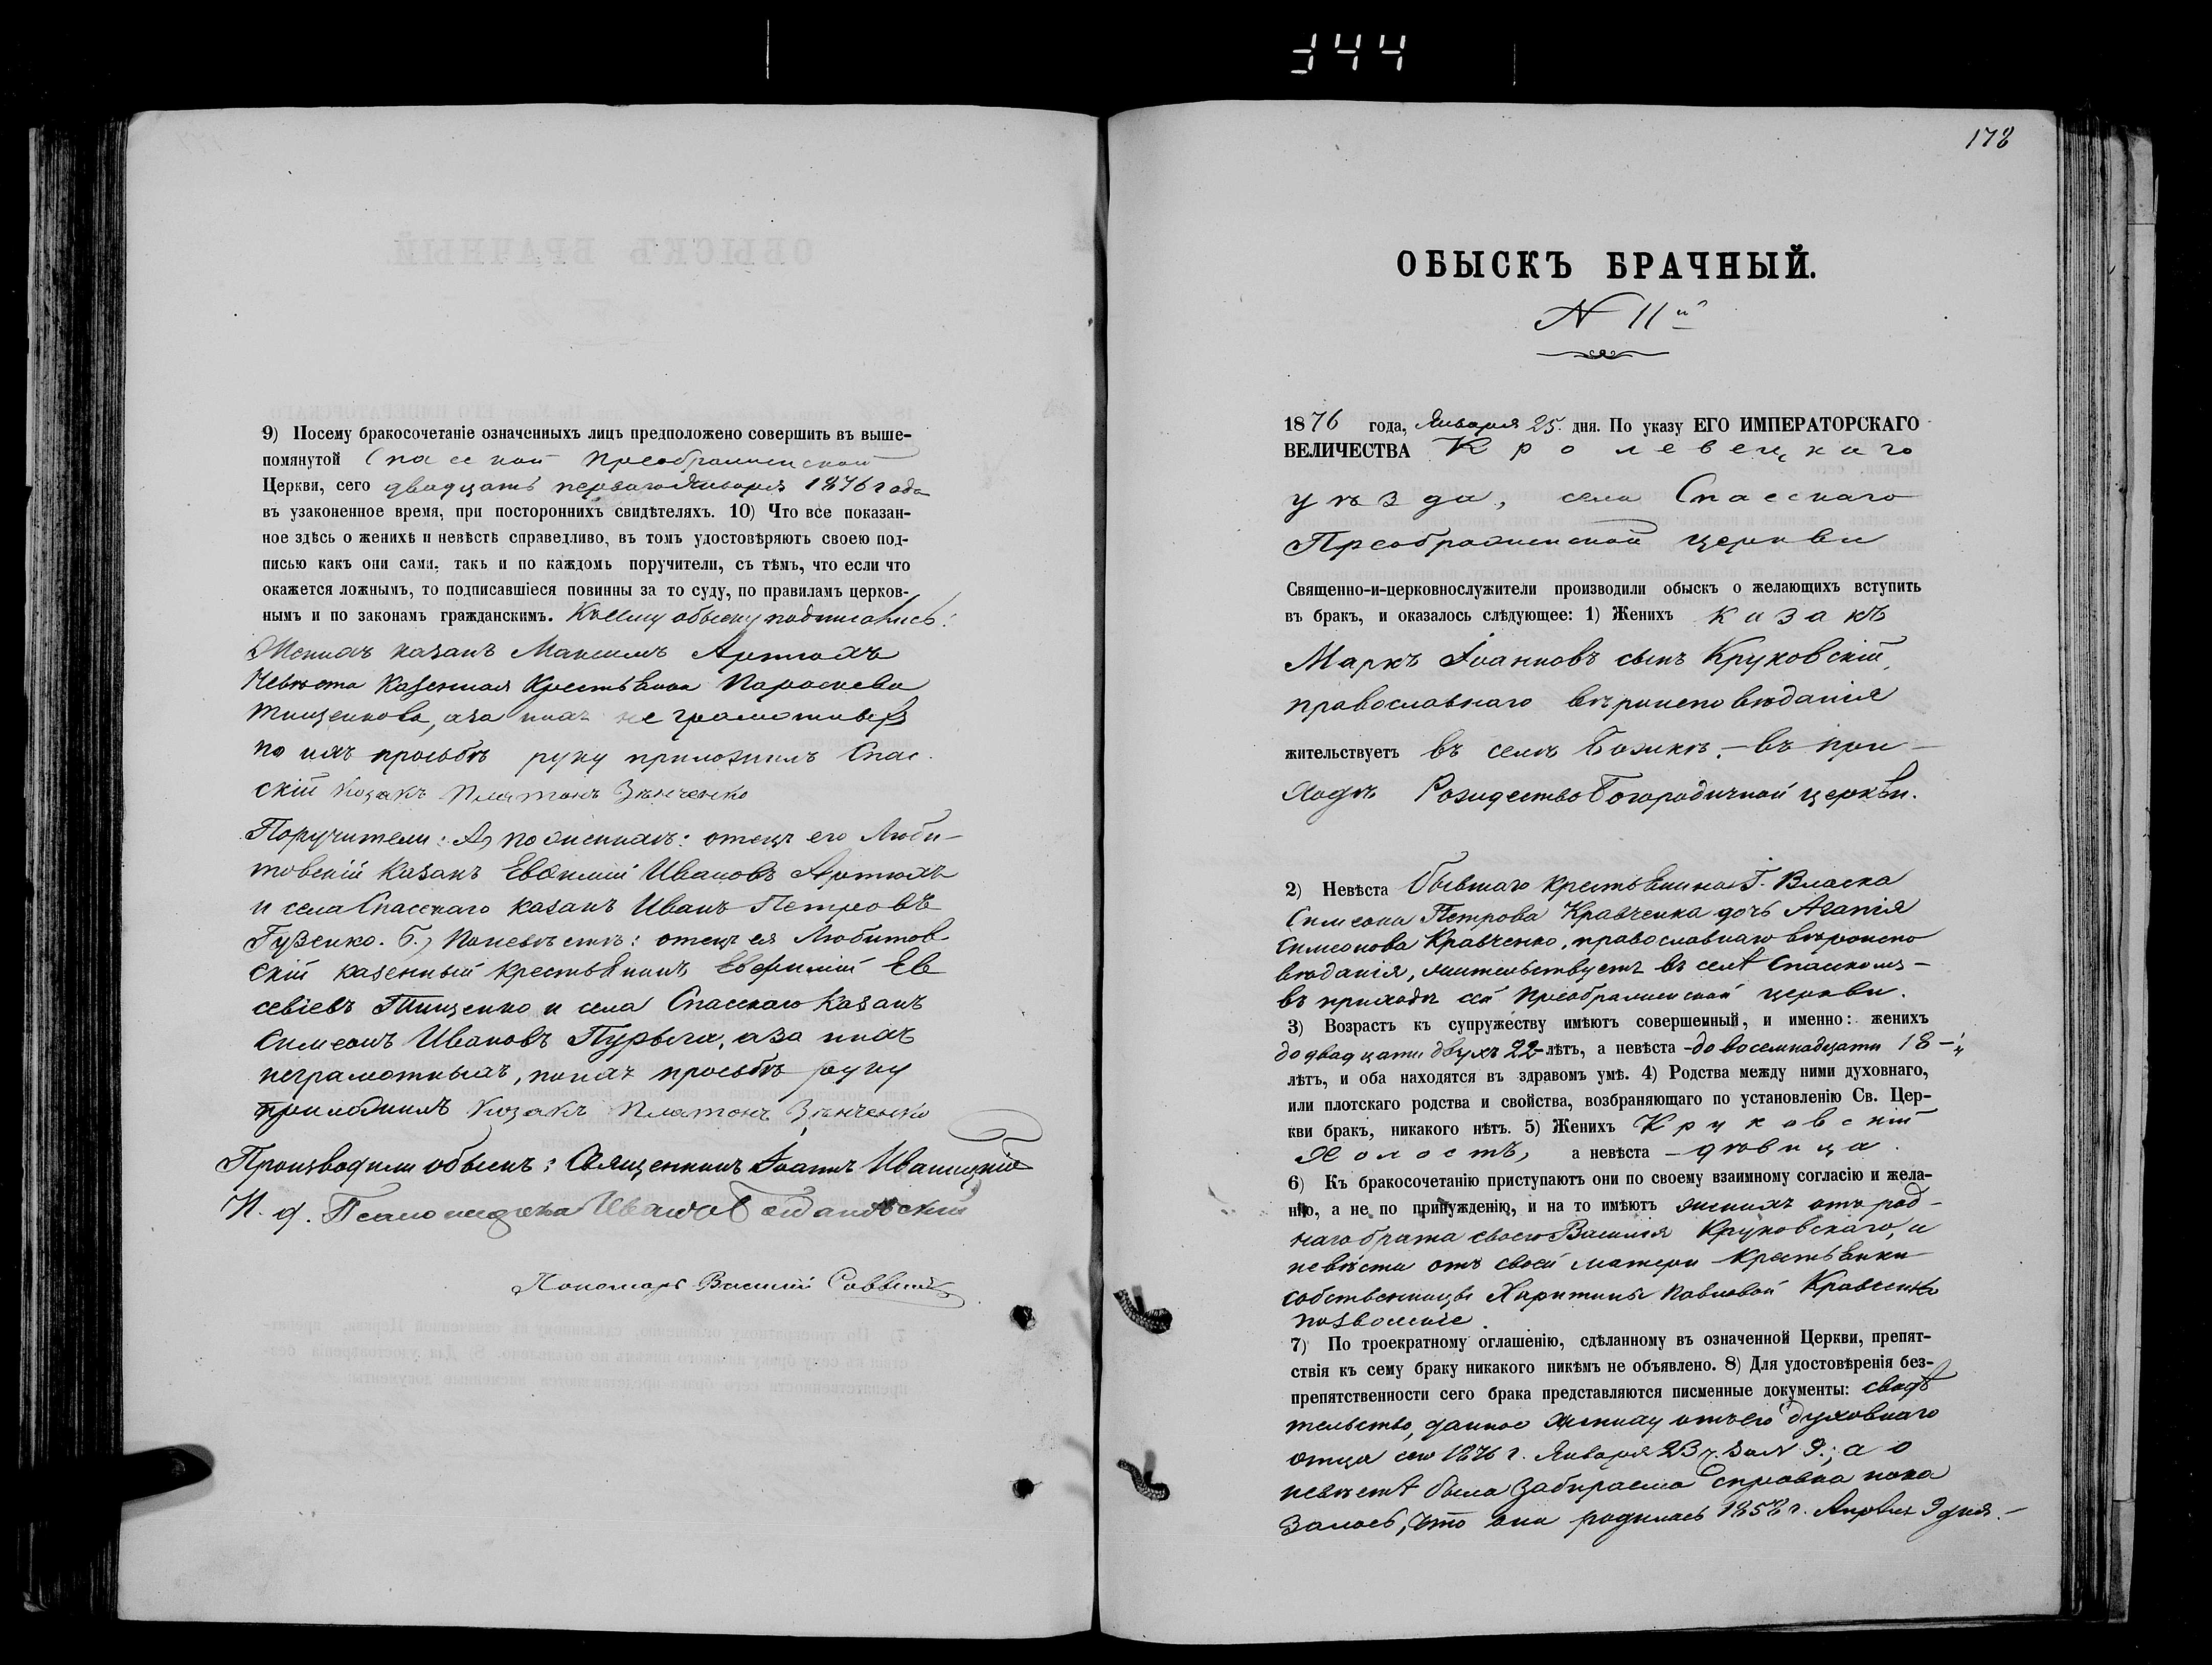 344
9) Посему бракосочетаніе означенныхъ лицъ предположено совершить въ выше-
помянутой Спасской Преображенской
Церкви, сего двадцать перваго Января 1876 года
въ узаконенное время, при постороннихъ свидѣтеляхъ. 10) Что все показан-
ное здѣсь о женихѣ и невѣстѣ справедливо, въ томъ удостовѣряютъ своею под-
писью какъ они сами, такъ и по каждомъ поручители, съ тѣмъ, что если что
окажется ложнымъ, то подписавшіеся повинны за то суду, по правиламъ церков-
нымъ и по законамъ гражданскимъ. Къ сему обыску подписались:
Женихъ казакъ Максимъ Артюхъ
Невѣста казенная крестьянка Параскева
Тищенкова, а за нихъ не грамотныхъ
по ихъ просьбѣ руку приложилъ Спас-
скій козакъ Платонъ Зѣнченко
Поручители: А, по женихѣ: отецъ его Люби-
товскій казакъ Евѳимій Ивановъ Артюхъ
и села Спасскаго казакъ Иванъ Петровъ
Гузенко. Б, по невѣстѣ: отецъ ея Любитов
скій казенный крестьянинъ Евфимій Ев
севіевъ Тищенко и села Спасскаго казакъ
Симеонъ Ивановъ Пурыга, а за нихъ
неграмотныхъ, по ихъ просьбѣ руку
приложилъ козакъ Платонъ Зѣнченко
Производили обыскъ: Священникъ Іоаннъ Иваницкій
И. д. Псаломщика Иванъ
Пономарь Василій Саввинъ
178
ОБЫСКЪ БРАЧНЫЙ.
N 11й
1876 года, Января 25 дня. По указу ЕГО ИМПЕРАТОРСКАГО
ВЕЛИЧЕСТВА Кролевецкаго
уѣзда, села Спасскаго
Преображенской церкви
Священно-и-церковнослужители производили обыскъ о желающихъ вступить
въ бракъ, и оказалось слѣдующее: 1) Женихъ казакъ
Маркъ Іоанновъ сынъ Круковскій,
православнаго вѣроисповѣданія
жительствуетъ въ селѣ Божкѣ - въ при-
ходѣ Рождество Богородичной церкви.
2) Невѣста бывшаго крестьянина Г. Власка
Симеона Петрова Кравченка дочь Агапія
Симеонова Кравченко, православнаго вѣроиспо
вѣданія, жительствуетъ въ селѣ Спасскомъ -
въ приходѣ сей Преображенской церкви.
3) Возрастъ къ супружеству имѣютъ совершенный, и именно: женихъ
до двадцати двухъ 22 лѣтъ, а невѣста - до восемнадцати 18 -
лѣтъ, и оба находятся въ здравомъ умѣ. 4) Родства между ними духовнаго,
или плотскаго родства и свойства, возбраняющаго по установленію Св. Цер-
кви бракъ, никакого нѣтъ. 5) Женихъ Круковскій
холостъ, а невѣста - дѣвица.
6) Къ бракосочетанію приступаютъ они по своему взаимному согласію и жела-
нію, а не по принужденію, и на то имѣютъ женихъ отъ род-
наго брата своего Василія Круковскаго, и
невѣста отъ своей матери крестьянки
собственницы Харитины Павловой Кравченко
позволеніе.
7) По троекратному оглашенію, сдѣланному въ означенной Церкви, препят-
ствія къ сему браку никакого никѣмъ не объявлено. 8) Для удостовѣренія без-
препятственности сего брака представляются писменные документы: свидѣ
тельство, данное жениху отъ его духовнаго
отца сего 1876 г. Января 23 ч. за N 9; а о
невѣстѣ была забираема справка пока
залось, что она родилась 1858 г. Апрѣля 9 дня. -